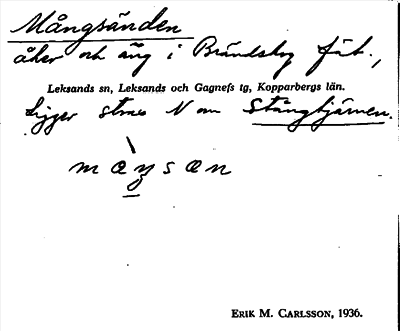 Mångsänden
åker och äng i Brändskog fäb.,
Leksands sn, Leksands och Gagnefs tg, Kopparbergs län.
Ligger strax N om Stångtjärnen.
ERIK M. CARLSSON, 1936.